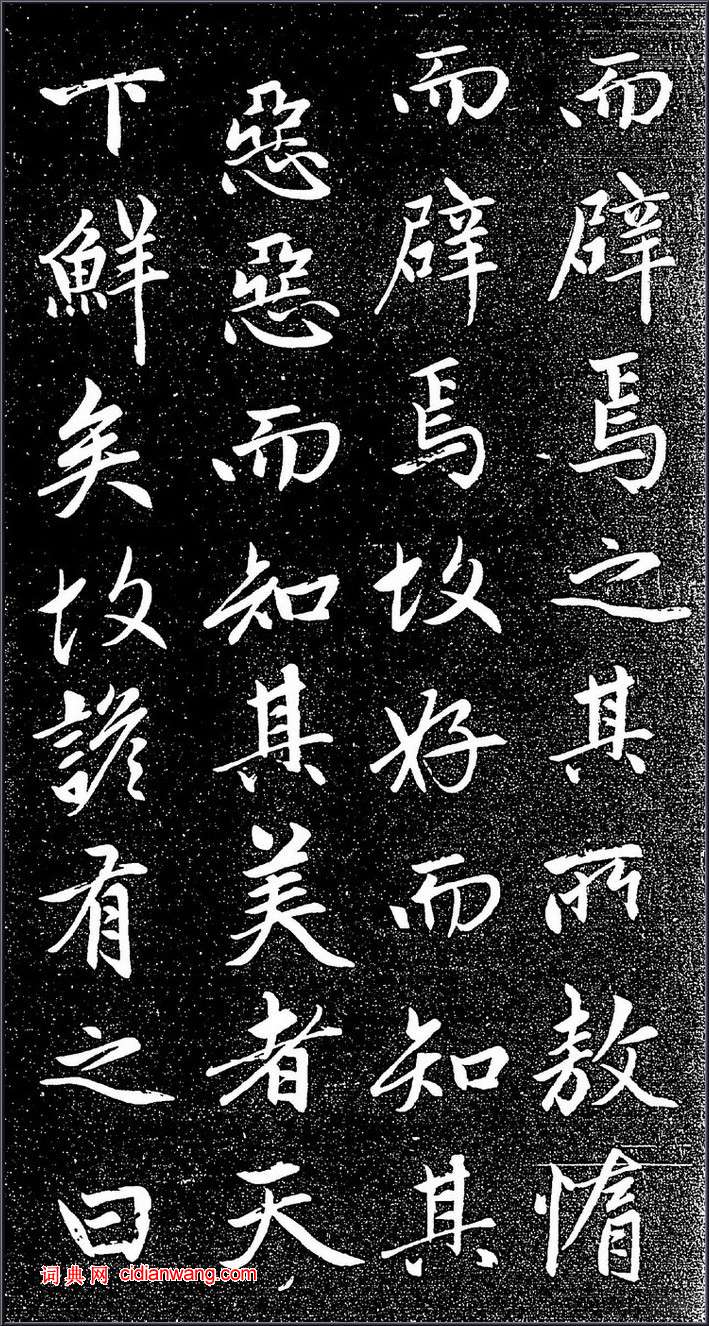 而辟焉之其所敖惰
而辟焉故好而知其
惡惡而知其美者天
下鮮矣故諺有之曰
词典网 cidianwang.com